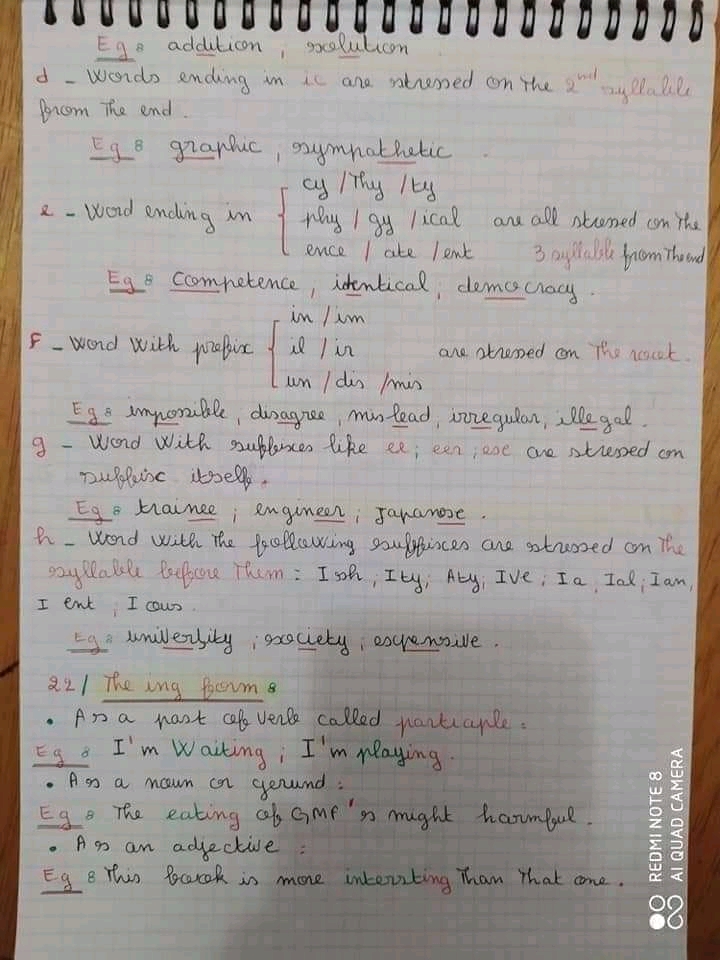 Eg : addition ; solution
d - Words ending in ic are stressed on the 2nd syllable
from the end.
Eg : graphic , sympathetic .
cy / Thy / ty
e - Word ending in { phy / gy / ical are all stressed on the
ence / ate / ent 3 syllable from the end
Eg : Ccompetence , identical , democracy .
in / im
F - Word With prefix { il / ir are stressed on The root.
un / dis / mis
Eg : impossible , disagree , mislead , irregular , illegal .
g - Word With suffixes like ee ; eer ; ese are stressed on
suffix itself .
Eg : trainee ; engineer ; Japanese .
h - Word With the following suffixes are stressed on The
syllable before Them : Ish , Ity , Aty , IVe , Ia , Ial , Ian ,
I ent , I ous .
Eg : university ; society ; expensive .
22 / The ing form :
• As a past of verb called participle :
Eg : I'm Waiting ; I'm playing .
• As a noun or gerund :
Eg : The eating of GMF's might harmful .
• As an adjective :
Eg : This book is more intersting Than that one .
REDMI NOTE 8
AI QUAD CAMERA